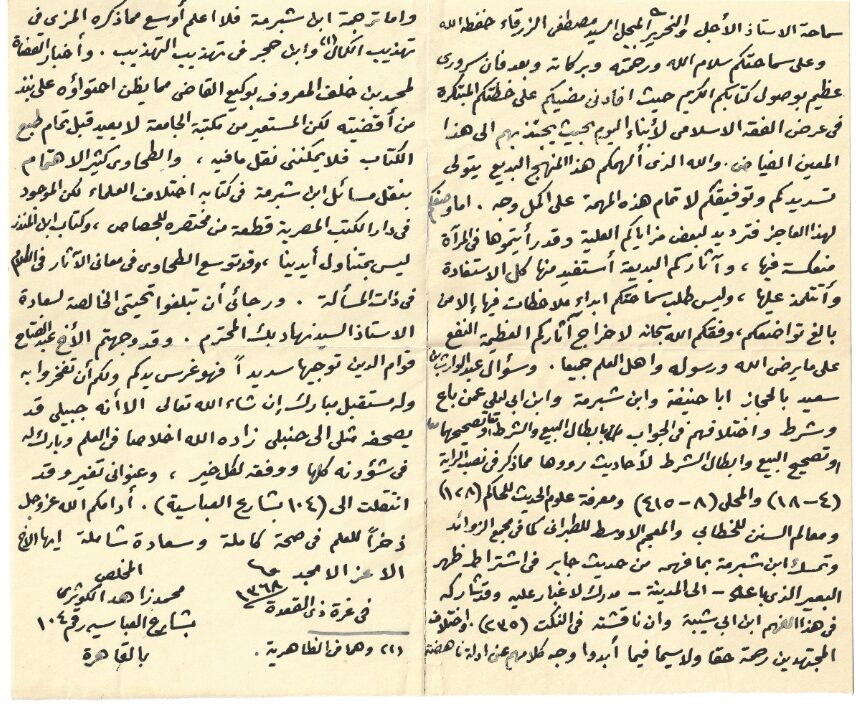 سماحة الاستاذ الأجل والنحرير المبجل السيد مصطفى الزرقاء حفظه الله
وعلى سماحتكم سلام الله ورحمته وبركاته وبعد فان سرورى
عظيم بوصول كتابكم الكريم حيث افادنى مضيكم على خطتكم المبتكرة
فى عرض الفقه الاسلامى لأبناء اليوم بحيث يجتذبهم الى هذا
المعين الفياض. والله الذى ألهمكم هذا المنهج البديع يتولى
تسديدكم وتوفيقكم لاتمام هذه المهمة على اكمل وجه. اما وصفكم
لهذا العاجز فترديد لبعض مزاياكم العلية وقد رأيتموها فى المرآة
منعكسة فيها، وآثاركم البديعة أستفيد منها كل الاستفادة
وأتتلمذ عليها، وليس طلب سماحتكم ابداء ملاحظات فيها إلا من
بالغ تواضعكم، وفقكم الله سبحانه لاخراج آثاركم العظيمة النفع
على ما يرضى الله ورسوله واهل العلم جميعا. وسؤال عبد الوارث بن
سعيد بالحجاز ابا حنيفة وابن شبرمة وابن ابى ليلى عمن باع
وشرط واختلافهم فى الجواب بابطال البيع والشرط او تصحيحهما
او تصحيح البيع وابطال الشرط لأحاديث رووها مما ذكر فى نصب الراية
(٤-١٨) والمحلى (٨-٤١٥) ومعرفة علوم الحديث للحاكم (١٢٨)
ومعالم السنن للخطابى والمعجم الاوسط للطبرانى كما فى مجمع الزوائد
وتمسك ابن شبرمة بما فهمه من حديث جابر فى اشتراط ظهر
البعير الذى باعه - الى المدينة - مدرك لا غبار عليه وقد شاركه
فى هذا الفهم ابن ابى شيبة وان ناقشته فى النكت (٢٣٥). واختلاف
المجتهدين رحمة حقا ولا سيما فيما أبدوا وجه كلامهم عن ادلة ناهضة
واما ترجمة ابن شبرمة فلا اعلم أوسع مما ذكره المزى فى
تهذيب الكمال (١) وابن حجر فى تهذيب التهذيب. وأخبار القضاة
لمحمد بن خلف المعروف بوكيع القاضى مما يظن احتواؤه على نبذ
من أقضيته لكن المستعير من مكتبة الجامعة لا يعيد قبل تمام طبع
الكتاب فلا يمكننى نقل ما فيه، والطحاوى كثير الاهتمام
بنقل مسائل ابن شبرمة فى كتابه اختلاف العلماء لكن الموجود
فى دار الكتب المصرية قطعة من مختصره للجصاص، وكتاب ابن المنذر
ليس بمتناول أيدينا، وقد توسع الطحاوى فى معانى الآثار فى
فى ذات المسألة. ورجائى أن تبلغوا تحيتى الخالصة لسعادة
الاستاذ السيد نهاد بك المحترم. وقد وجهتم الأخ عبد الفتاح
قوام الدين توجيها سديداً فهو غرس يدكم ولكم أن تفخروا به
وله مستقبل مبارك إن شاء الله تعالى الا أنه جبيلى قد
يصحفه مثلى الى حنبلى زاده الله اخلاصا فى العلم وبارك له
فى شؤونه كلها ووفقه لكل خير، وعنوانى تغير وقد
انتقلت الى (١٠٤ بشارع العباسية). أدامكم الله عز وجل
ذخراً للعلم فى صحة كاملة وسعادة شاملة ايها الأخ
الاعز الامجد
فى غرة ذى القعدة ١٣٦٨
المخلص
محمد زاهد الكوثرى
بشارع العباسية رقم ١٠٤
بالقاهرة
(١) وهما فى الظاهرية.